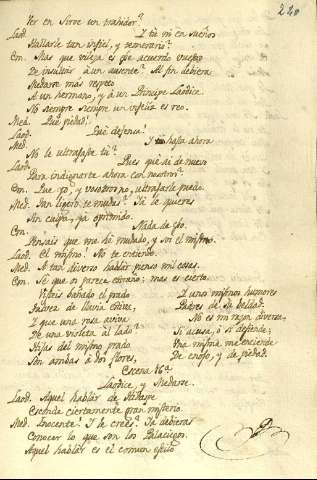 220
Ver en Siroe un traidor?
Laod. Y tu ni en sueños
Hallarle tan infiel, y temerario?
Em. Mas que viveza es esse acuerdo vuestro
De insultar à un ausente? Al fin debiera
Medarse mas respeto
A un hermano, y à un Principe Laodice
No siempre siempre un infeliz es reo.
Med. Què piedad!
Laod. Què defensa!
Med. Y tu hasta ahora
No le ultrajaste tù?
Laod. Pues què ai de nuevo
Para indignarte ahora con nosotros?
Em. Que yo, y vosotros no, ultrajarle puedo.
Med. Tan ligero te mudas? Ià le quieres
Sin culpa, ya oprimido.
Em. Nada de esso.
Pensais que me hè mudado, y soi el mismo.
Laod. El mismo. No te entiendo.
Med. A tan diverso hablar pienso mil cosas.
Em. Sè que os parece estraño; mas es cierto.
Visteis bañado el prado
Padece de lluvia estiva,
Y que una rosa aviva
De una violeta al lado?
Hijas del mismo prado
Son ambas à dos flores,
Y unos mismos humores
Padres de su beldad.
No es mi razon diversa,
Si acusa, ò si defiende;
Una misma me enciende
De enojo, y de piedad.
Escena 16ª
Laodice, y Medarse.
Laod. Aquel hablar de Hidaspe
Esconde ciertamente gran misterio.
Med. Inocente! Y le crees? Ia debieras
Conocer lo que son los Palaciegos.
Aquel hablar es el comun estilo